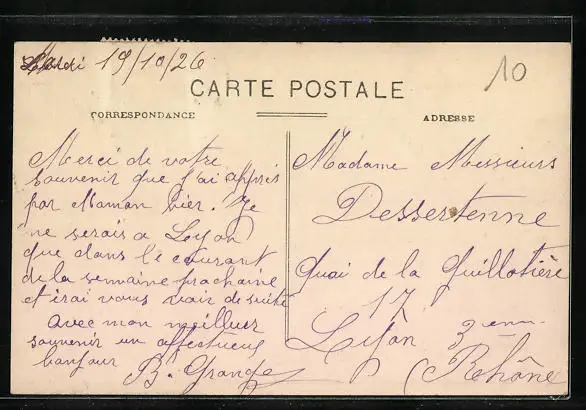 Mardi 19/10/26
10
CARTE POSTALE
CORRESPONDANCE
ADRESSE
Merci de votre
souvenir que j'ai appris
par Maman hier. Je
ne serais a Lyon
que dans le courant
de la semaine prochaine
et irai vous voir de suite
avec mon meilleur
souvenir un affectueux
bonjour
B. Grange
Madame Messieurs
Dessertenne
Quai de la Guillotière
17
Lyon 3eme
(Rhône)